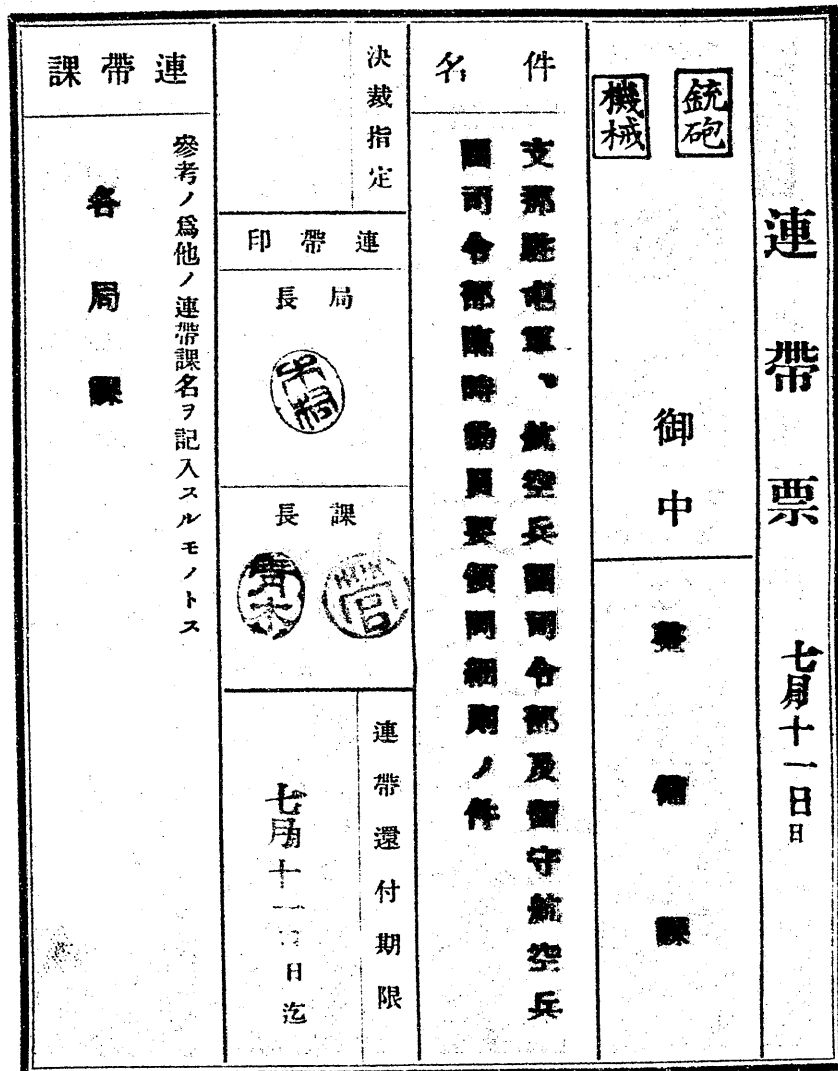 連帶票 七月十一日日
銃砲
機械
御中
整備課
件名
支那駐屯軍、航空兵團司令部及留守航空兵
團司令部臨時動員要領同細則ノ件
決裁指定
連帶印
局長
課長
菅
青木
連帶還付期限
七月十一日日迄
連帶課
參考ノ爲他ノ連帶課名ヲ記入スルモノトス
各局課